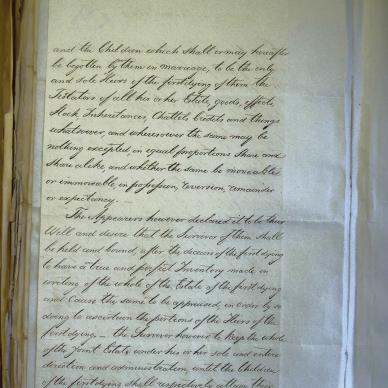 and the Children which shall or may hereafter
be begotten by them in marriage, to be the only
and sole Heirs of the first dying of them the
Testators of all his or her Estate, goods, effects
Stock Inheritances, Chattels Credits and things
whatsoever, and wheresoever the same may be
nothing excepted, in equal proportions Share and
Share alike, and whether the same be moveable
or immoveable, in possession, reversion, remainder
or expectancy. —
The Appearers however declared it to be their
Will and desire that the Survivor of them shall
be held and bound, after the decease of the first dying
to have a true and perfect Inventory made in
writing of the whole of the Estate of the first dying
and cause the same to be appraised, in order by so
doing to ascertain the portions of the Heirs of the
first dying. — the Survivor however to keep the whole
of the Joint Estate under his or her sole and entire
direction and administration, until the Children
of the first dying shall respectively attain their